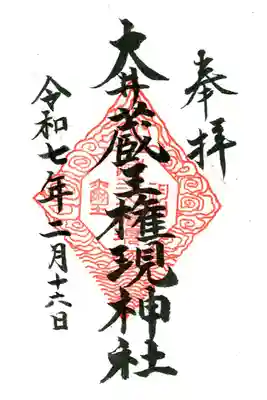 奉拝
大井蔵王権現神社
令和七年二月十六日